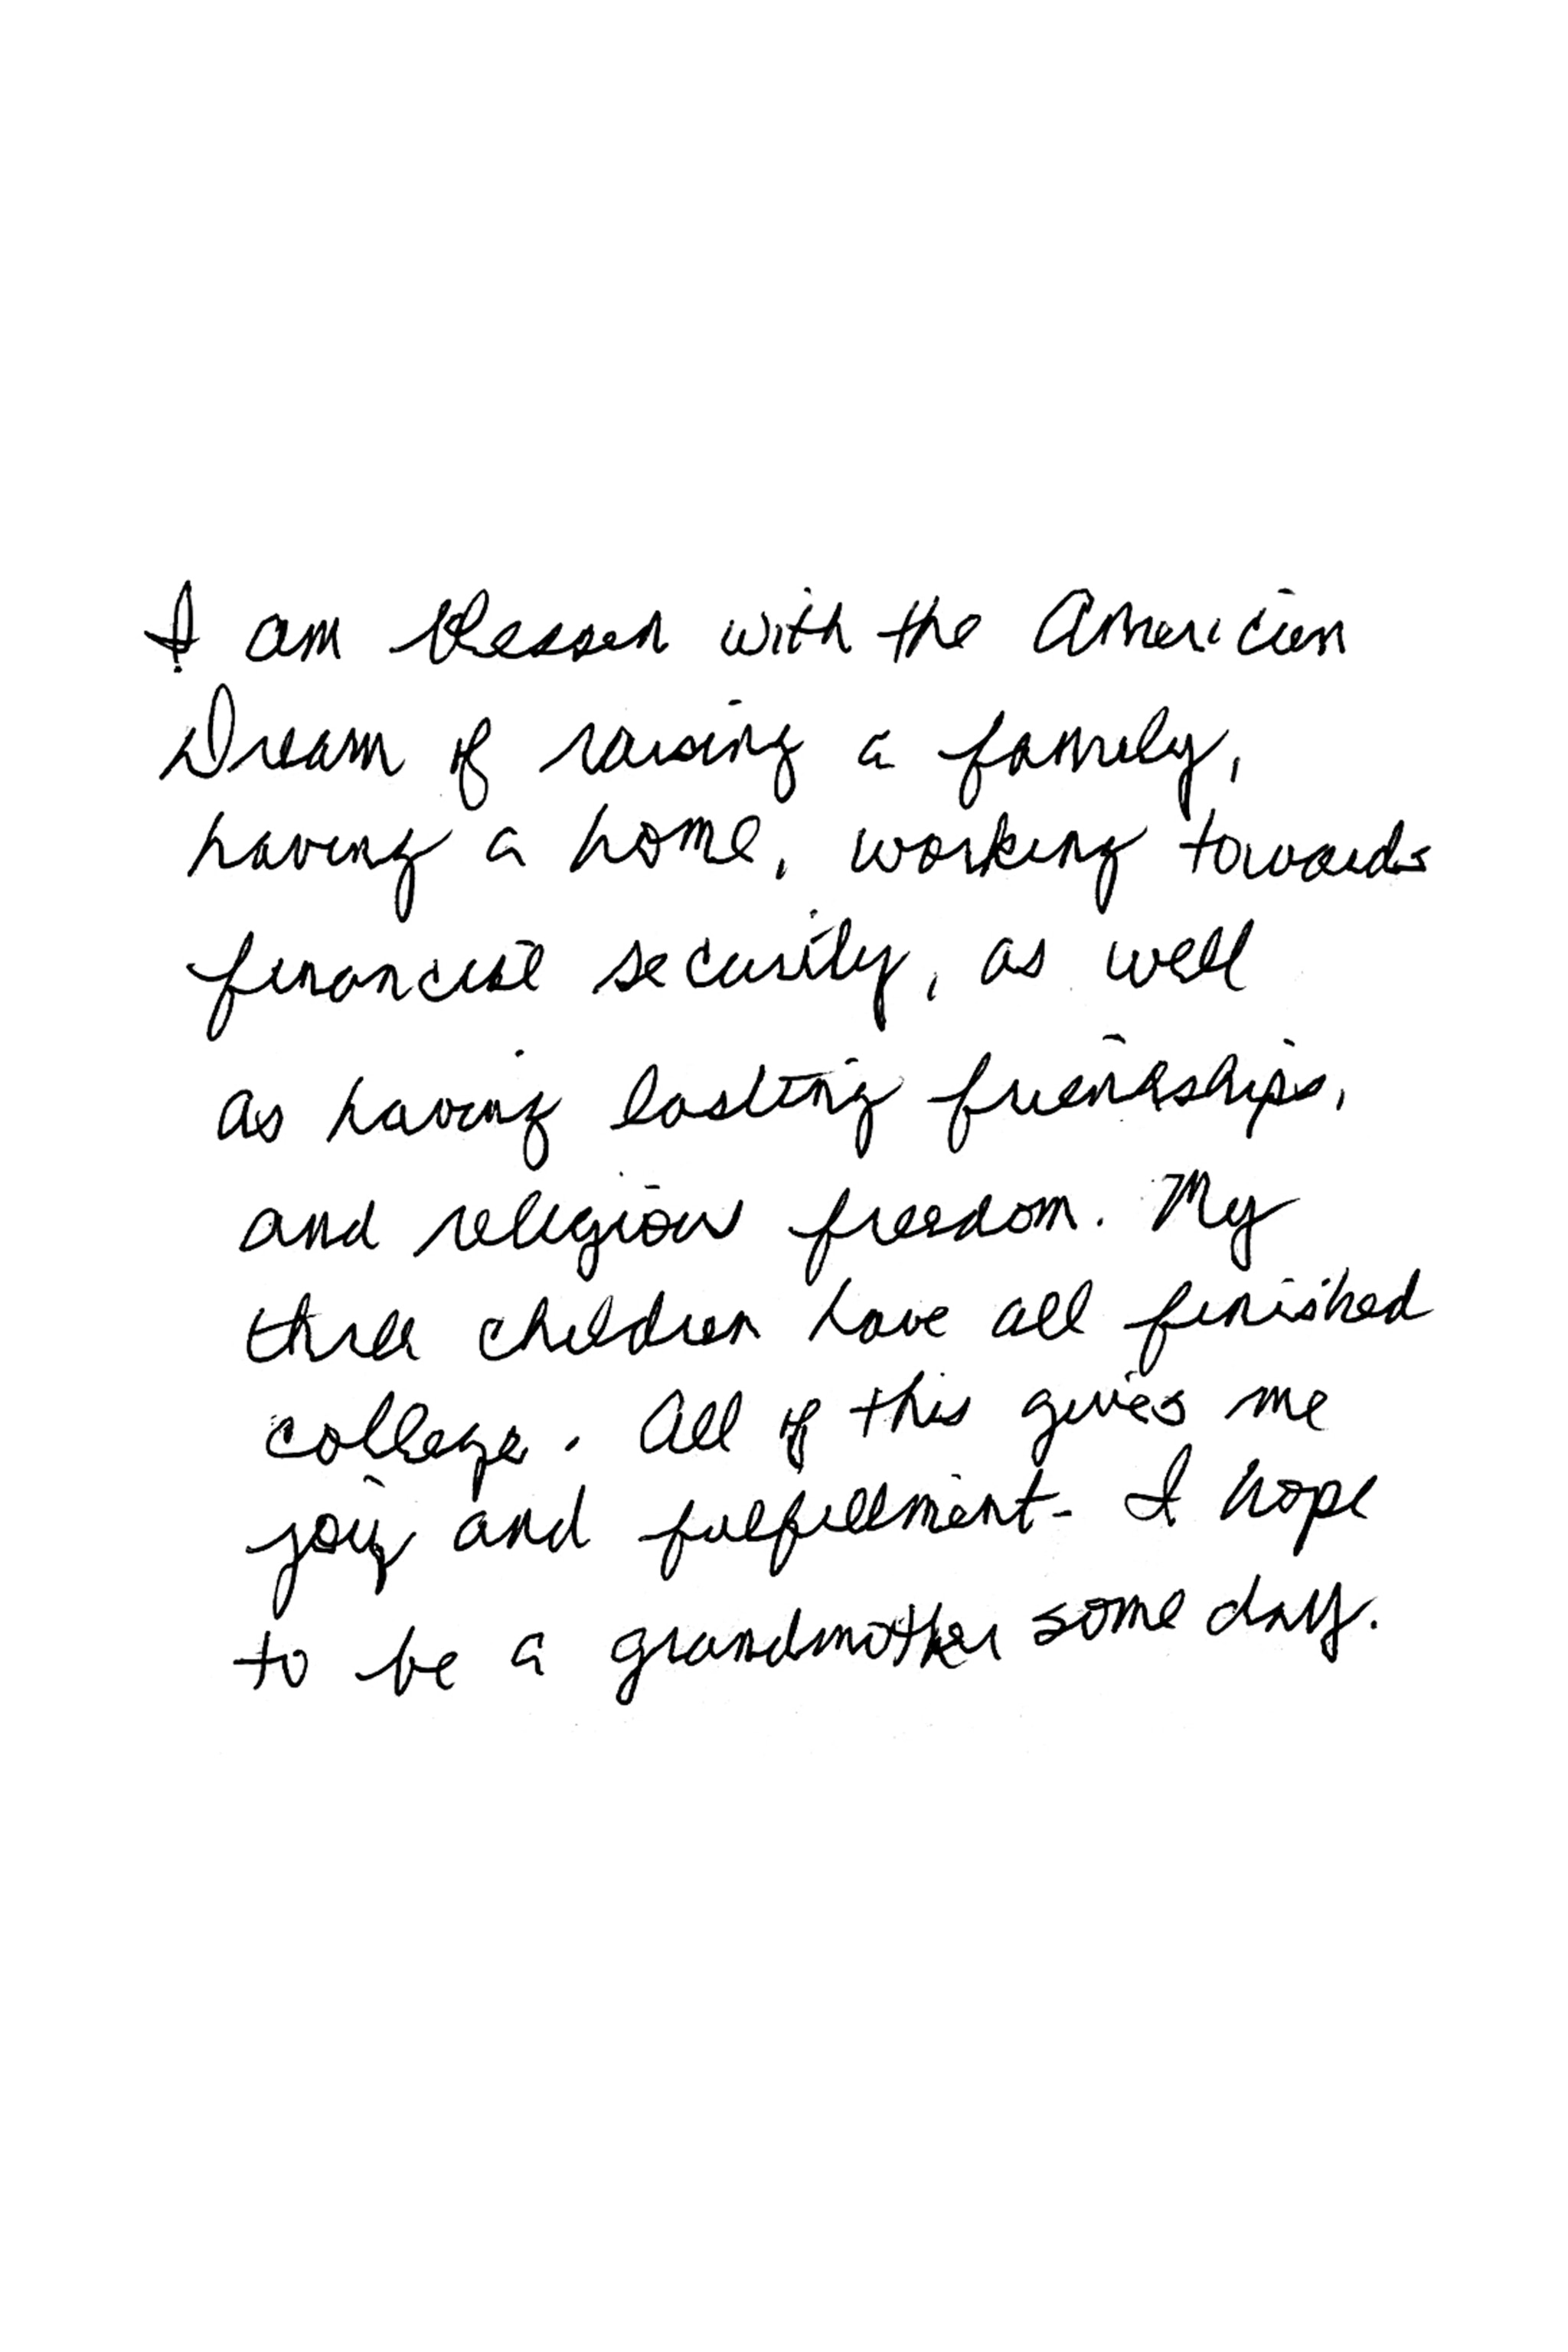 I am blessed with the American
Dream of raising a family,
having a home, working towards
financial security, as well
as having lasting friendships,
and religious freedom. My
three children have all finished
college. All of this gives me
joy and fulfillment - I hope
to be a grandmother some day.